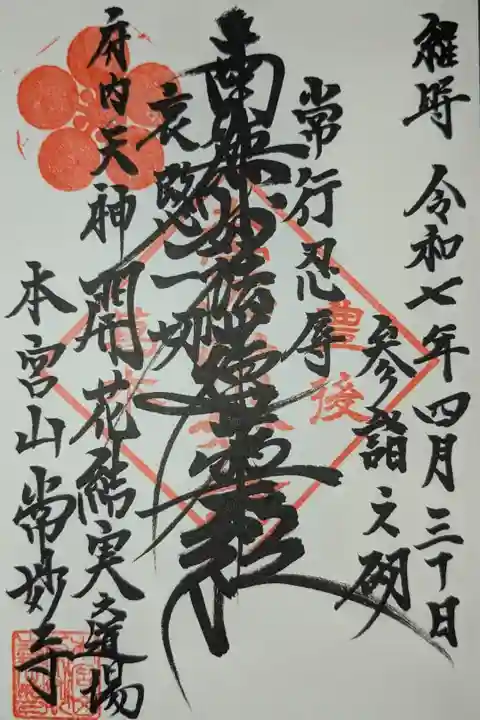 維時 令和七年四月三十日
参詣之砌
常行忍辱
南無妙法蓮華経
哀愍一切
府内天神開花結実道場
本宮山常妙寺
豊後